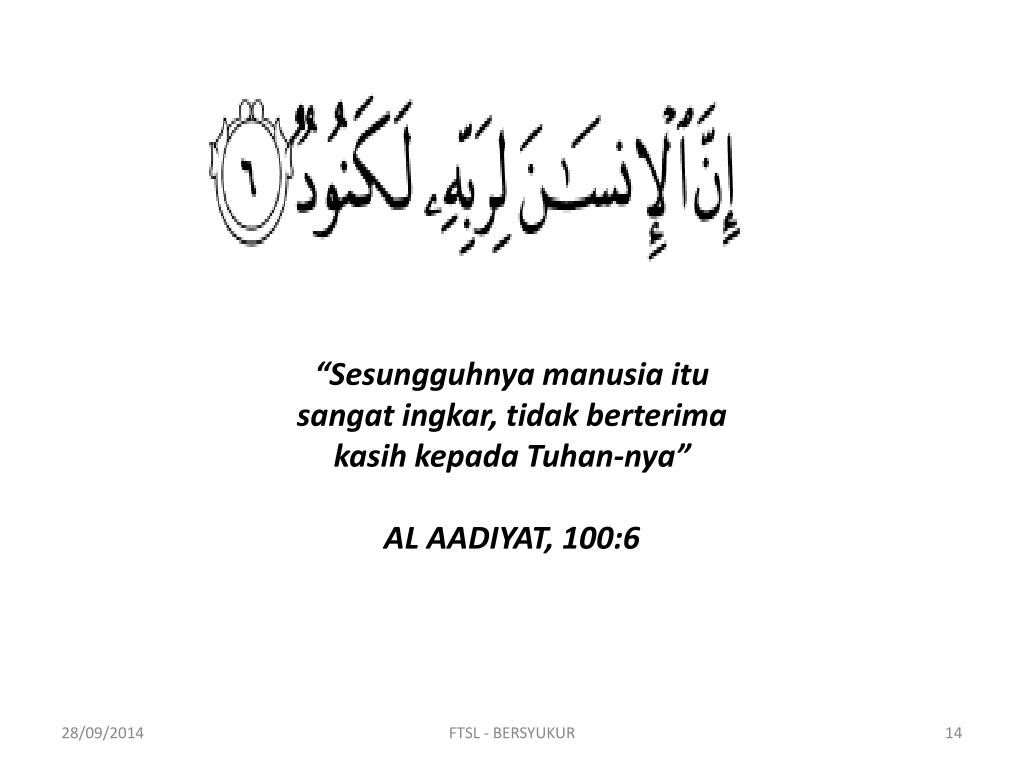 إِنَّ ٱلْإِنسَـٰنَ لِرَبِّهِۦ لَكَنُودٌ ٦
“Sesungguhnya manusia itu
sangat ingkar, tidak berterima
kasih kepada Tuhan-nya”
AL AADIYAT, 100:6
28/09/2014 FTSL - BERSYUKUR 14